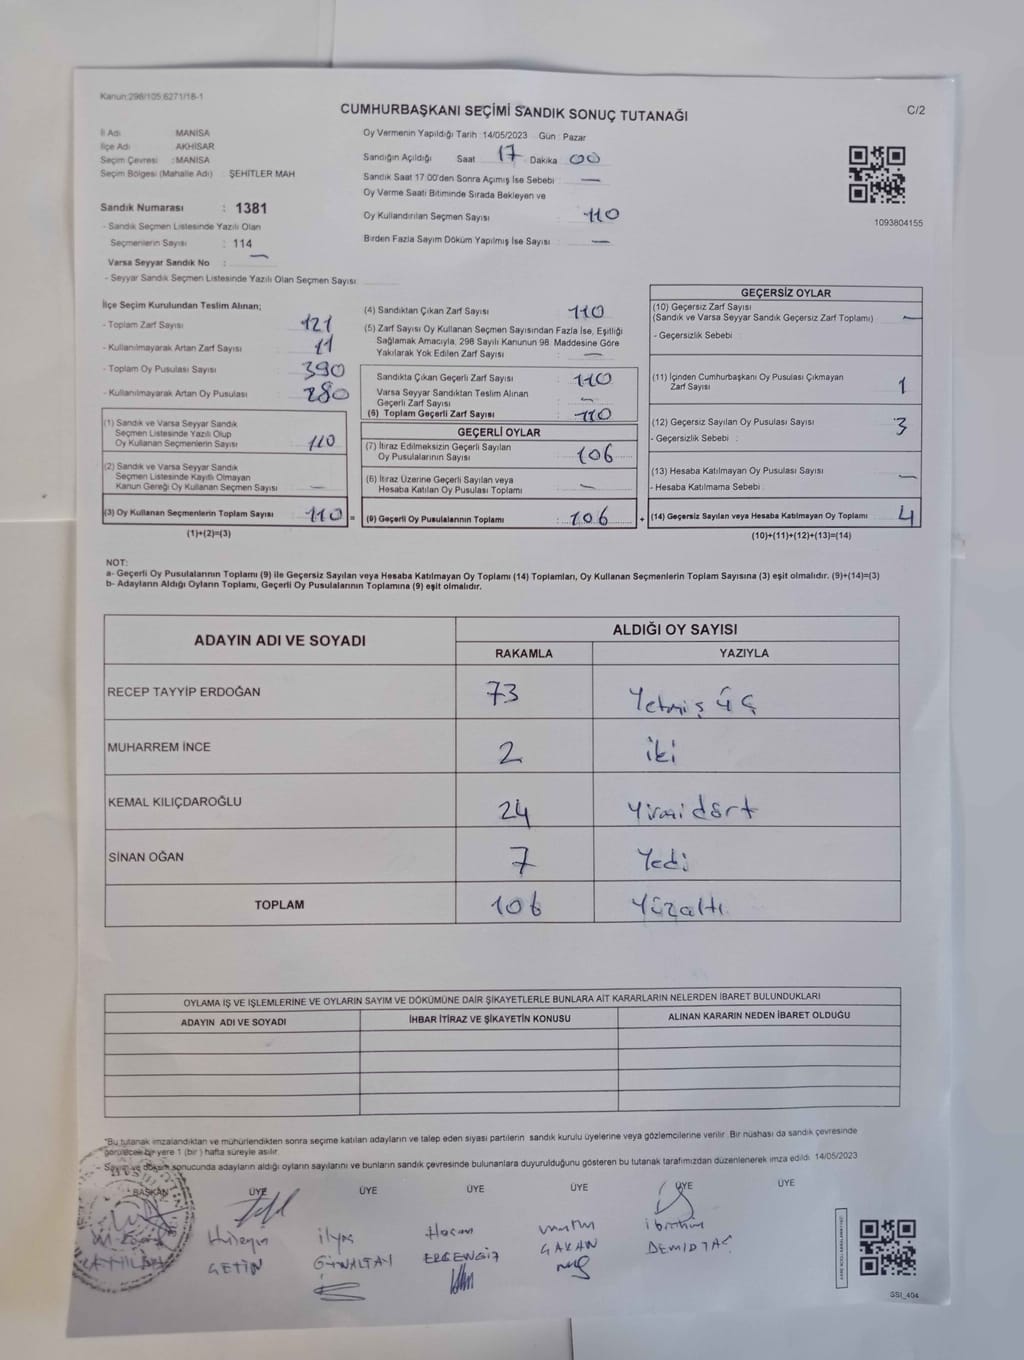 Kanun:298/105.6271/18-1
CUMHURBAŞKANI SEÇİMİ SANDIK SONUÇ TUTANAĞI
C/2
İl Adı : MANİSA
İlçe Adı : AKHİSAR
Seçim Çevresi : MANİSA
Seçim Bölgesi (Mahalle Adı) : ŞEHİTLER MAH
Sandık Numarası : 1381
- Sandık Seçmen Listesinde Yazılı Olan
Seçmenlerin Sayısı : 114
Varsa Seyyar Sandık No : —
- Seyyar Sandık Seçmen Listesinde Yazılı Olan Seçmen Sayısı
Oy Vermenin Yapıldığı Tarih : 14/05/2023 Gün : Pazar
Sandığın Açıldığı Saat 17 Dakika 00
Sandık Saat 17.00'den Sonra Açımış İse Sebebi : —
Oy Verme Saati Bitiminde Sırada Bekleyen ve
Oy Kullandırılan Seçmen Sayısı : 110
Birden Fazla Sayım Döküm Yapılmış İse Sayısı : —
1093804155
İlçe Seçim Kurulundan Teslim Alınan;
- Toplam Zarf Sayısı : 121
- Kullanılmayarak Artan Zarf Sayısı : 11
- Toplam Oy Pusulası Sayısı : 390
- Kullanılmayarak Artan Oy Pusulası : 280
(1) Sandık ve Varsa Seyyar Sandık
Seçmen Listesinde Yazılı Olup
Oy Kullanan Seçmenlerin Sayısı : 110
(2) Sandık ve Varsa Seyyar Sandık
Seçmen Listesinde Kayıtlı Olmayan
Kanun Gereği Oy Kullanan Seçmen Sayısı : —
(3) Oy Kullanan Seçmenlerin Toplam Sayısı : 110 =
(1)+(2)=(3)
(4) Sandıktan Çıkan Zarf Sayısı : 110
(5) Zarf Sayısı Oy Kullanan Seçmen Sayısından Fazla İse, Eşitliği
Sağlamak Amacıyla, 298 Sayılı Kanunun 98. Maddesine Göre
Yakılarak Yok Edilen Zarf Sayısı : —
Sandıkta Çıkan Geçerli Zarf Sayısı : 110
Varsa Seyyar Sandıktan Teslim Alınan
Geçerli Zarf Sayısı : —
(6) Toplam Geçerli Zarf Sayısı : 110
GEÇERLİ OYLAR
(7) İtiraz Edilmeksizin Geçerli Sayılan
Oy Pusulalarının Sayısı : 106
(8) İtiraz Üzerine Geçerli Sayılan veya
Hesaba Katılan Oy Pusulası Toplamı : —
(9) Geçerli Oy Pusulalarının Toplamı : 106 +
GEÇERSİZ OYLAR
(10) Geçersiz Zarf Sayısı
(Sandık ve Varsa Seyyar Sandık Geçersiz Zarf Toplamı) : —
- Geçersizlik Sebebi :
(11) İçinden Cumhurbaşkanı Oy Pusulası Çıkmayan
Zarf Sayısı : 1
(12) Geçersiz Sayılan Oy Pusulası Sayısı : 3
- Geçersizlik Sebebi :
(13) Hesaba Katılmayan Oy Pusulası Sayısı : —
- Hesaba Katılmama Sebebi :
(14) Geçersiz Sayılan veya Hesaba Katılmayan Oy Toplamı : 4
(10)+(11)+(12)+(13)=(14)
NOT:
a- Geçerli Oy Pusulalarının Toplamı (9) ile Geçersiz Sayılan veya Hesaba Katılmayan Oy Toplamı (14) Toplamları, Oy Kullanan Seçmenlerin Toplam Sayısına (3) eşit olmalıdır. (9)+(14)=(3)
b- Adayların Aldığı Oyların Toplamı, Geçerli Oy Pusulalarının Toplamına (9) eşit olmalıdır.
ADAYIN ADI VE SOYADI
ALDIĞI OY SAYISI
RAKAMLA YAZIYLA
RECEP TAYYİP ERDOĞAN 73 Yetmiş üç
MUHARREM İNCE 2 iki
KEMAL KILIÇDAROĞLU 24 Yirmidört
SİNAN OĞAN 7 Yedi
TOPLAM 106 Yüzaltı
OYLAMA İŞ VE İŞLEMLERİNE VE OYLARIN SAYIM VE DÖKÜMÜNE DAİR ŞİKAYETLERLE BUNLARA AİT KARARLARIN NELERDEN İBARET BULUNDUKLARI
ADAYIN ADI VE SOYADI İHBAR İTİRAZ VE ŞİKAYETİN KONUSU ALINAN KARARIN NEDEN İBARET OLDUĞU
"Bu tutanak imzalandıktan ve mühürlendikten sonra seçime katılan adayların ve talep eden siyasi partilerin sandık kurulu üyelerine veya gözlemcilerine verilir. Bir nüshası da sandık çevresinde
görülecek bir yere 1 (bir) hafta süreyle asılır.
- Sayım ve döküm sonucunda adayların aldığı oyların sayılarını ve bunların sandık çevresinde bulunanlara duyurulduğunu gösteren bu tutanak tarafımızdan düzenlenerek imza edildi. 14/05/2023
BAŞKAN ÜYE ÜYE ÜYE ÜYE ÜYE ÜYE
Hüseyin ilyas Hasan ibrahim
ÇETİN GÜNALTAY ERGENGİZ GAKAN DEMİDTAŞ
SSI_404